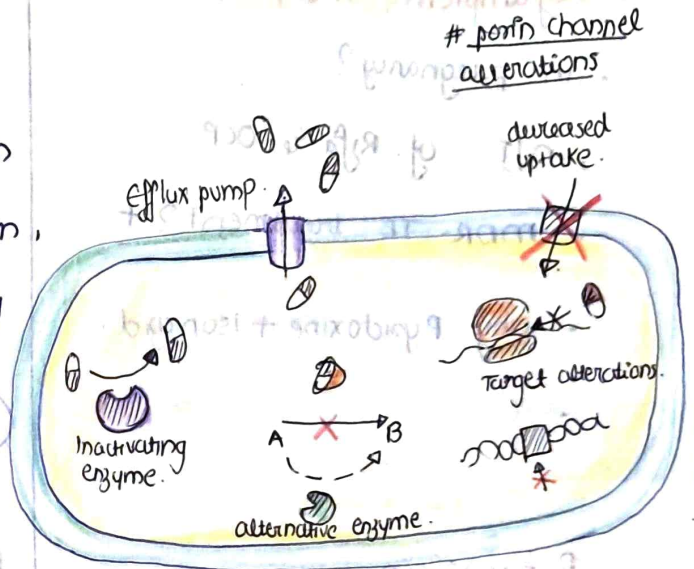 # porin channel
alterations
decreased
uptake.
Efflux pump.
Target alterations.
Inactivating
enzyme.
A
B
alternative enzyme.